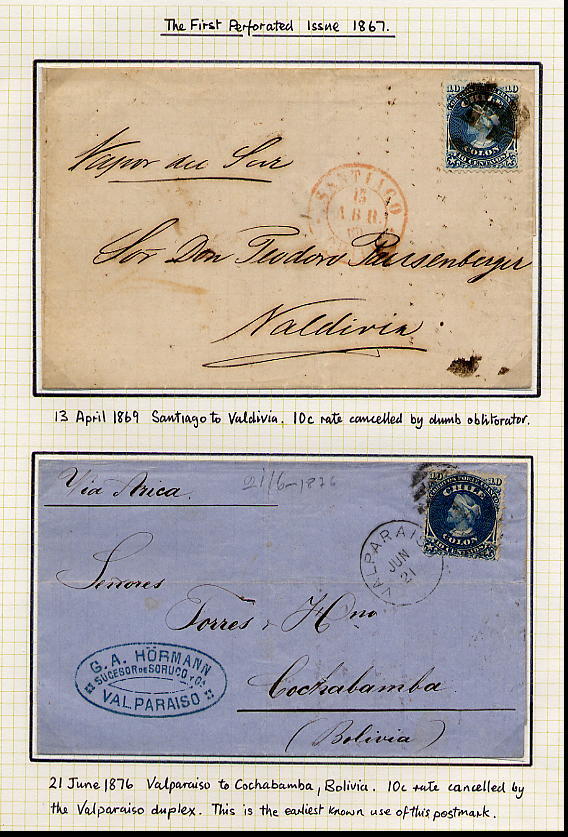 The First Perforated Issue 1867.
10 10
COLON
Vapor del Sur
SANTIAGO
ABR.
Sor Don Teodoro
Valdivia.
13 April 1869 Santiago to Valdivia. 10c rate cancelled by dumb obliterator.
Via Arica.
21/6-1876
10 10
CHILE
COLON
VALPARAISO
JUN
21
Señores
Torres y Hno
G. A. HÖRMANN
SUCESOR DE SORUCO Y CA
VALPARAISO
Cochabamba
(Bolivia)
21 June 1876 Valparaiso to Cochabamba, Bolivia. 10c rate cancelled by
the Valparaiso duplex. This is the earliest known use of this postmark.